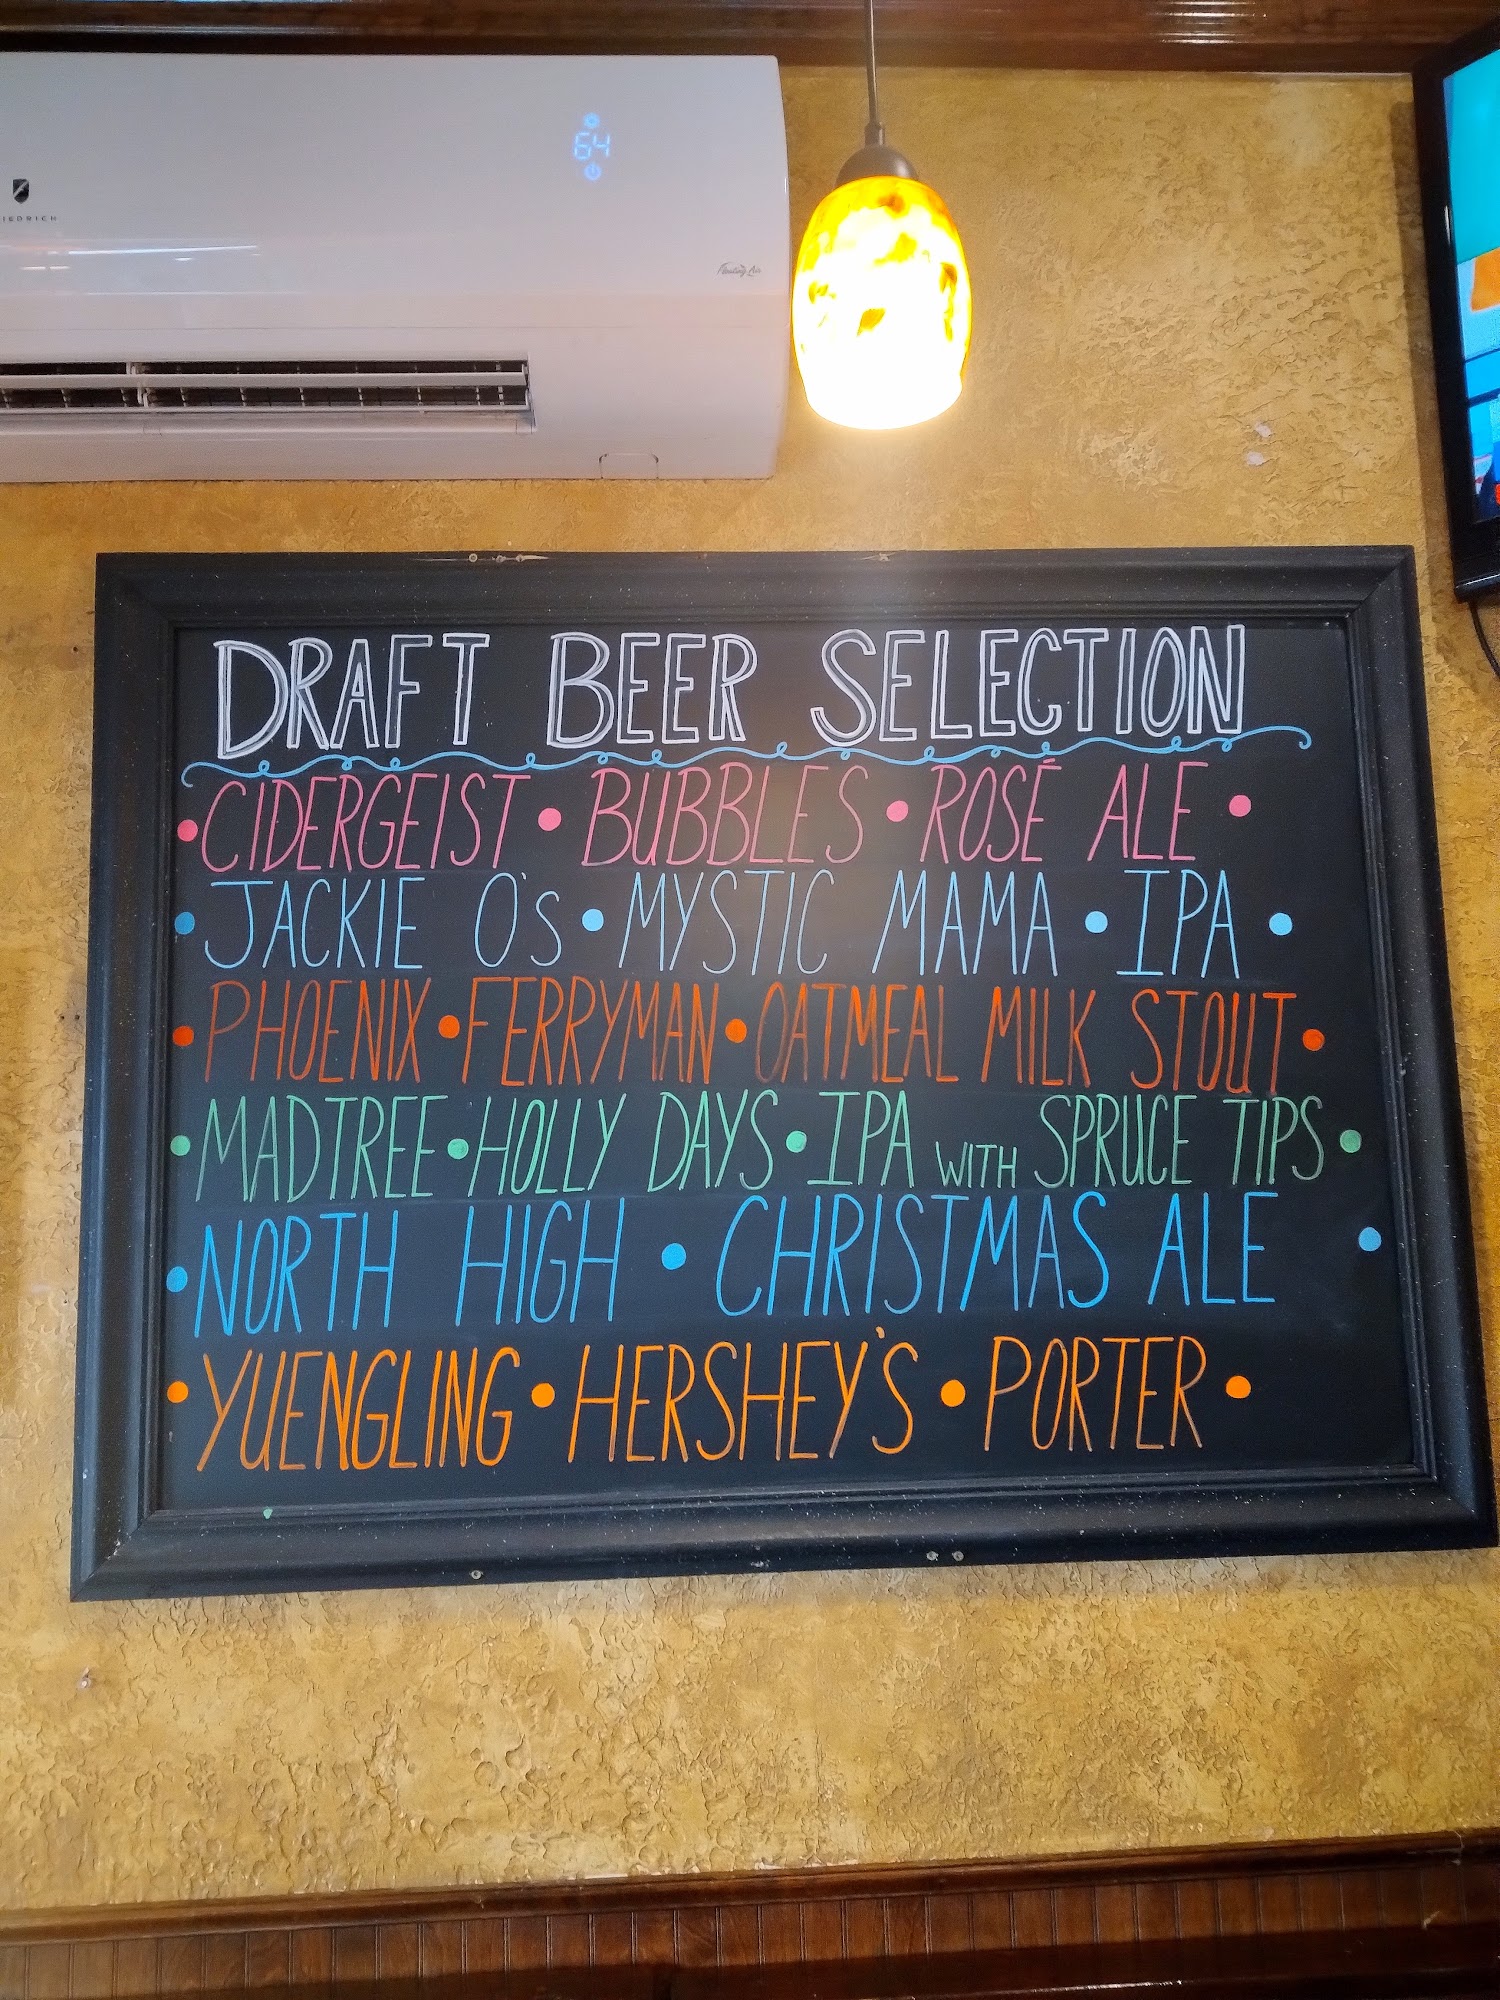 64
Floating Air
DRAFT BEER SELECTION
• CIDERGEIST • BUBBLES • ROSÉ ALE •
• JACKIE O's • MYSTIC MAMA • IPA •
• PHOENIX • FERRYMAN • OATMEAL MILK STOUT •
• MADTREE • HOLLY DAYS • IPA WITH SPRUCE TIPS •
• NORTH HIGH • CHRISTMAS ALE •
• YUENGLING • HERSHEY'S • PORTER •